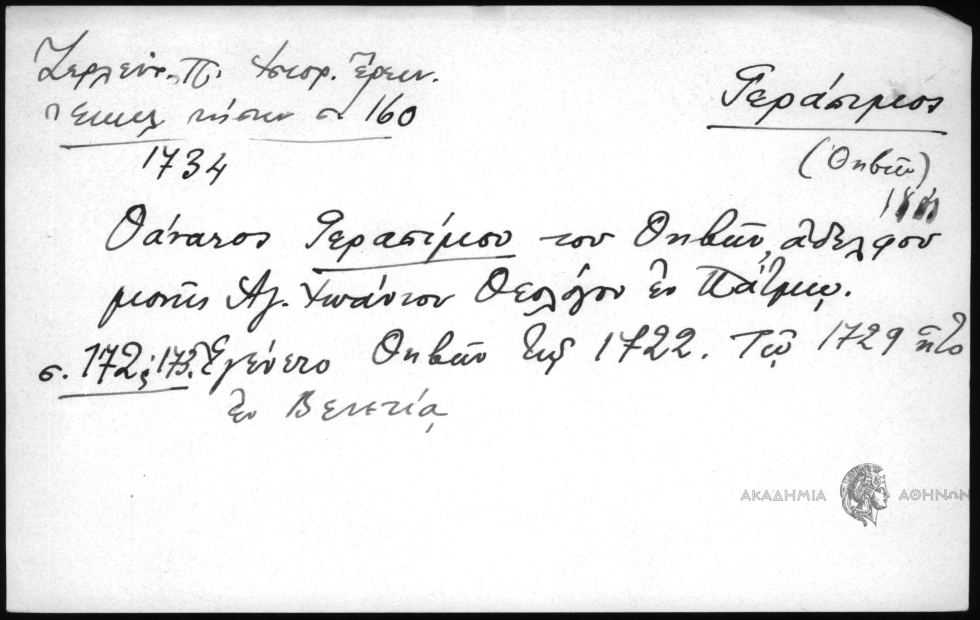 Ζερλέντ. Π. Ἱστορ. Ἔρευν.
π ἐκκλ νήσων σ. 160
1734
Γεράσιμος
(Θηβῶν)
Θάνατος Γερασίμου του Θηβῶν, ἀδελφου
μονῆς Ἁγ. Ἰωάννου Θεολόγου ἐν Πάτμῳ.
σ. 172, 173. Ἐγένετο Θηβῶν τῷ 1722. Τῷ 1729 ἦτο
ἐν Βενετίᾳ
ΑΚΑΔΗΜΙΑ ΑΘΗΝΩΝ